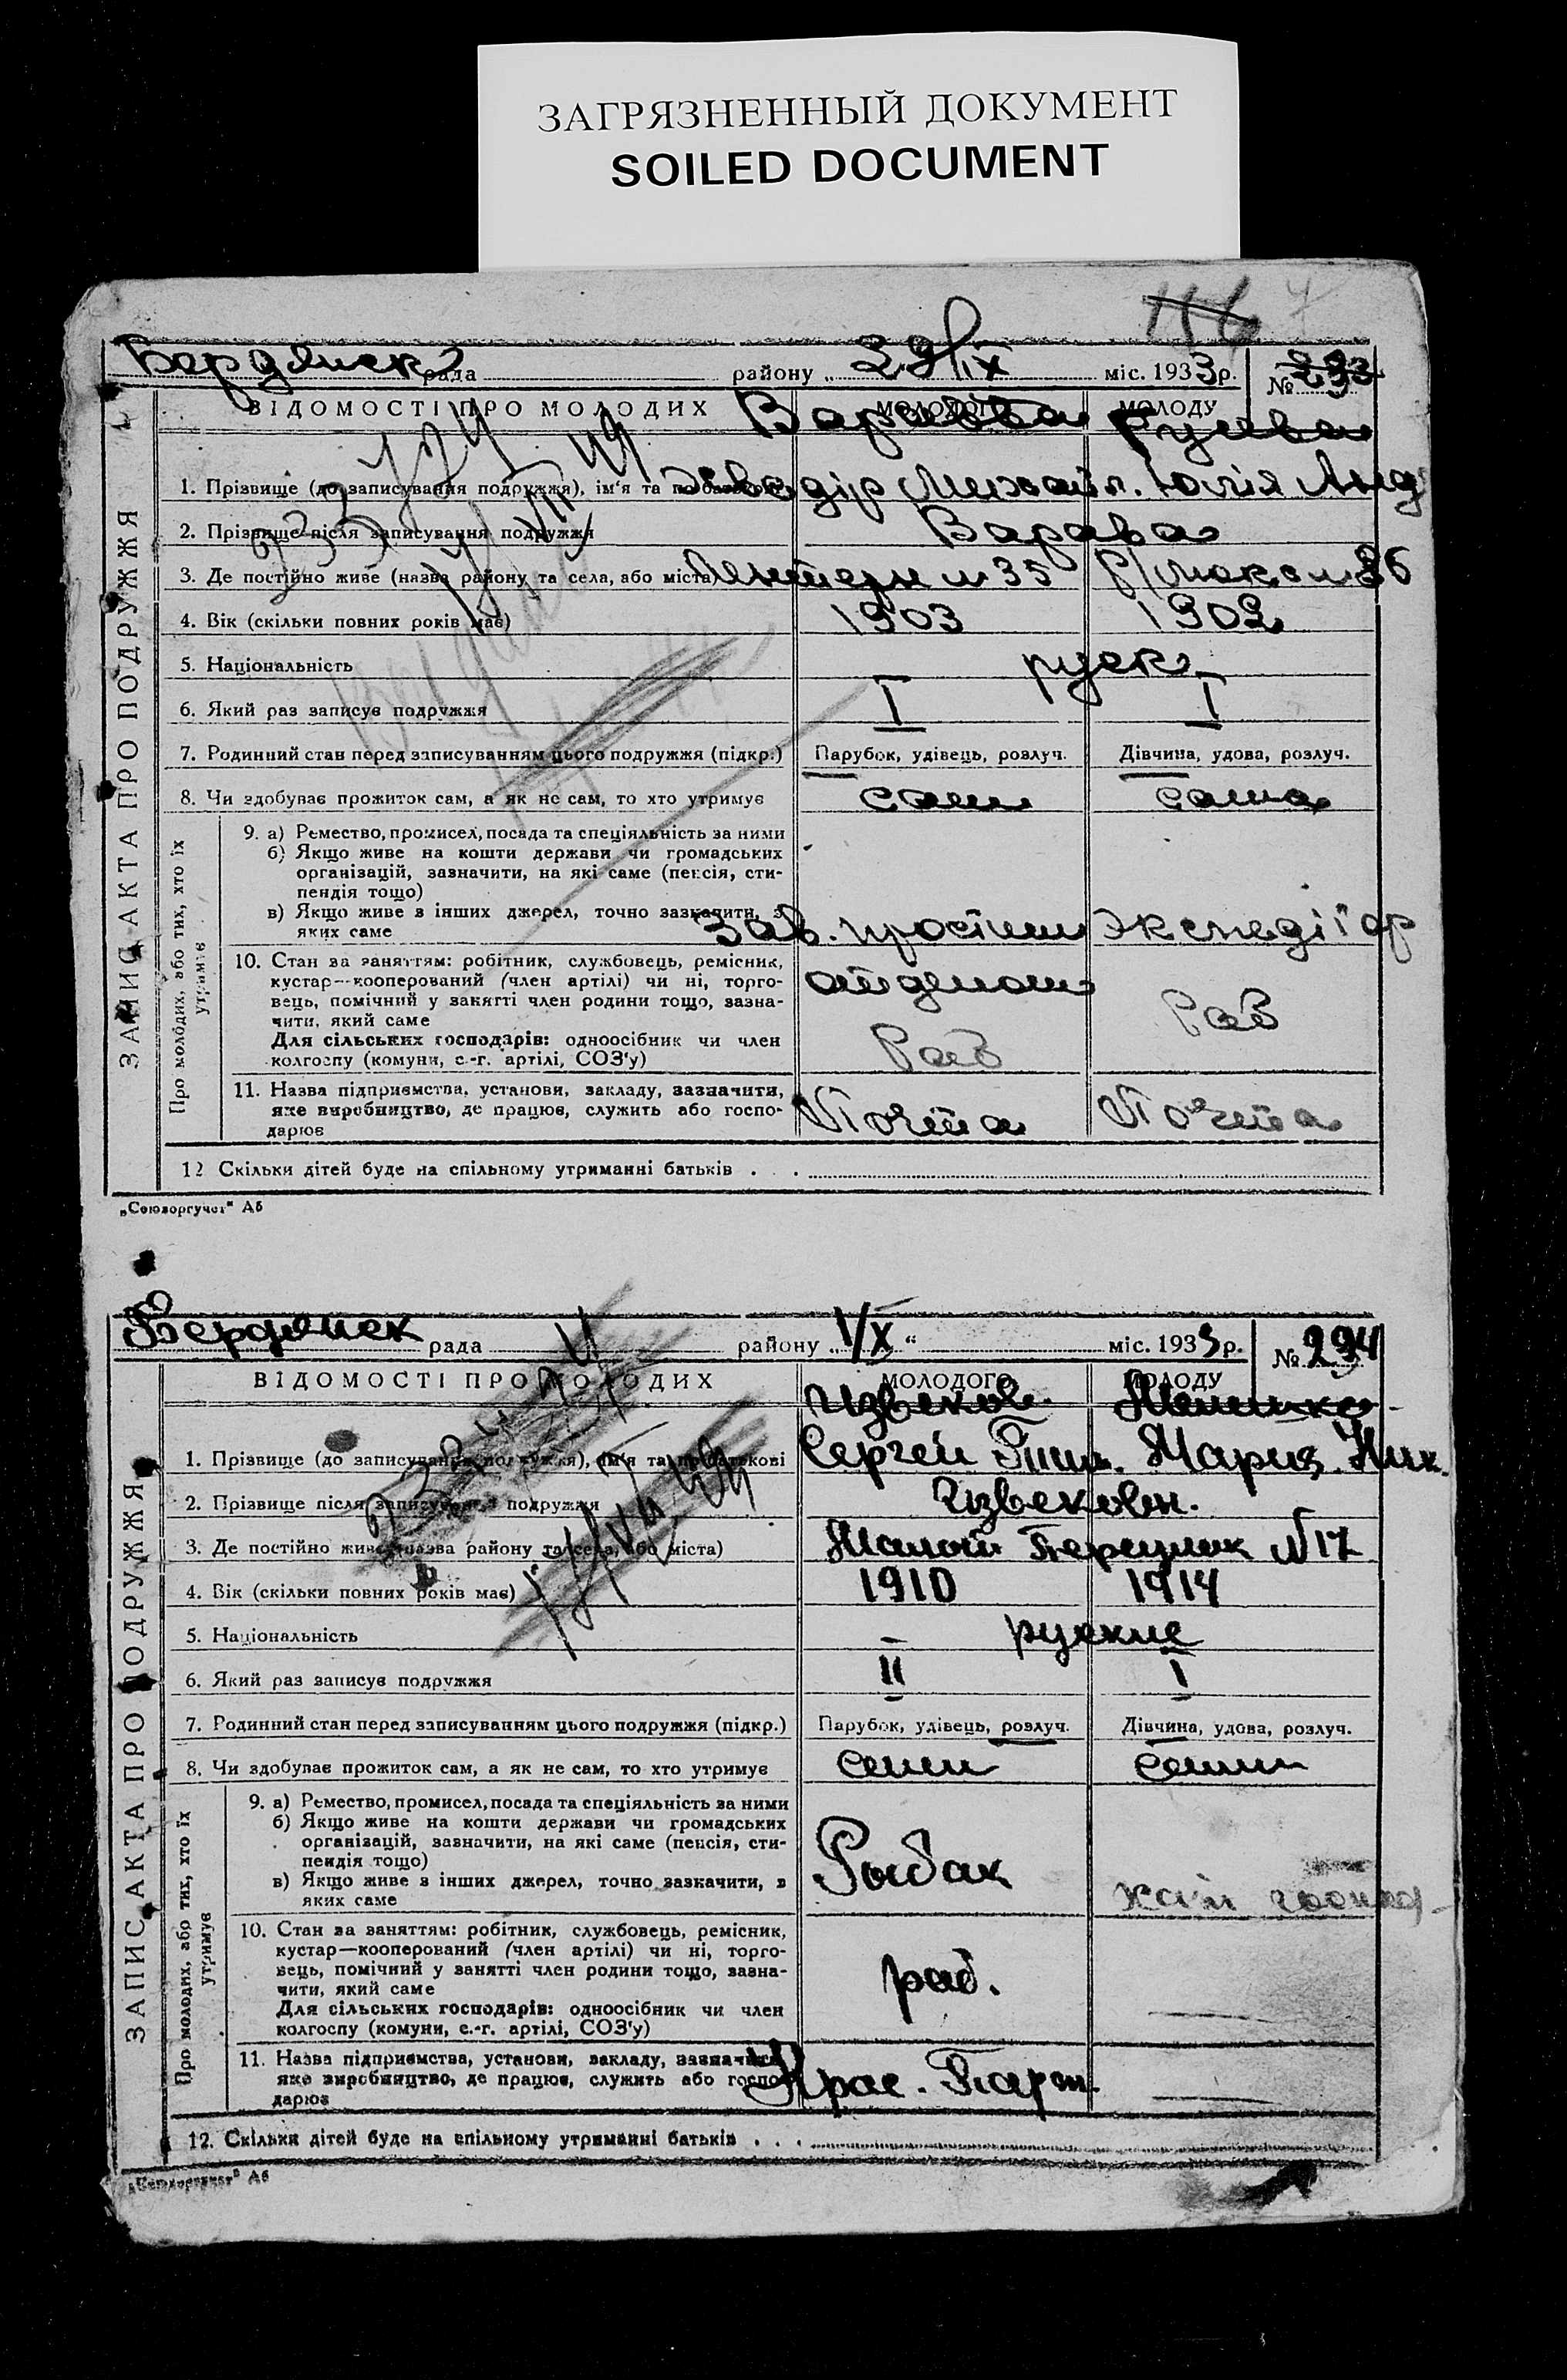 ЗАГРЯЗНЕННЫЙ ДОКУМЕНТ
SOILED DOCUMENT
Бердянск рада району „ 29/IX міс. 1933 р. № 293
ЗАПИС АКТА ПРО ПОДРУЖЖЯ
ВІДОМОСТІ ПРО МОЛОДИХ МОЛОДОГО МОЛОДУ
Варавва
1. Прізвище (до записування подружжя), ім'я та по батькові Михайл. Юлія Анд
2. Прізвище після записування подружжя Варава
3. Де постійно живе (назва району та села, або міста) 35 86
4. Вік (скільки повних років має) 1903 1902
5. Національність руск
6. Який раз записує подружжя I I
7. Родинний стан перед записуванням цього подружжя (підкр.) Парубок, удівець, розлуч. Дівчина, удова, розлуч.
8. Чи здобуває прожиток сам, а як не сам, то хто утримує сам сама
Про молодих, або тих, хто їх утримує
9. а) Ремество, промисел, посада та спеціяльність за ними
б) Якщо живе на кошти держави чи громадських
організацій, зазначити, на які саме (пенсія, сти-
пендія тощо)
в) Якщо живе з інших джерел, точно зазначити, з
яких саме Зав. экспедіїор
10. Стан за заняттям: робітник, службовець, ремісник,
кустар—кооперований (член артілі) чи ні, торго-
вець, помічний у занятті член родини тощо, зазна-
чити, який саме
Для сільських господарів: одноосібник чи член
колгоспу (комуни, с.-г. артілі, СОЗ'у) Раб Раб
11. Назва підприємства, установи, закладу, зазначити,
яке виробництво, де працює, служить або госпо-
дарює Почта Почта
12 Скільки дітей буде на спільному утриманні батьків . . .
„Союзоргучот" Аб
Бердянск рада району „ 1/X " міс. 1933 р. № 294
ЗАПИС АКТА ПРО ПОДРУЖЖЯ
ВІДОМОСТІ ПРО МОЛОДИХ МОЛОДОГО МОЛОДУ
Извеков
1. Прізвище (до записування подружжя), ім'я та по батькові Сергей Мария Ник.
2. Прізвище після записування подружжя Извековы.
3. Де постійно живе (назва району та села, або міста) №17
4. Вік (скільки повних років має) 1910 1914
5. Національність руские
6. Який раз записує подружжя II I
7. Родинний стан перед записуванням цього подружжя (підкр.) Парубок, удівець, розлуч. Дівчина, удова, розлуч.
8. Чи здобуває прожиток сам, а як не сам, то хто утримує
Про молодих, або тих, хто їх утримує
9. а) Ремество, промисел, посада та спеціяльність за ними
б) Якщо живе на кошти держави чи громадських
організацій, зазначити, на які саме (пенсія, сти-
пендія тощо) Рыбак
в) Якщо живе з інших джерел, точно зазначити, з
яких саме
10. Стан за заняттям: робітник, службовець, ремісник,
кустар—кооперований (член артілі) чи ні, торго-
вець, помічний у занятті член родини тощо, зазна-
чити, який саме раб.
Для сільських господарів: одноосібник чи член
колгоспу (комуни, с.-г. артілі, СОЗ'у)
11. Назва підприємства, установи, закладу, зазначити,
яке виробництво, де працює, служить або госпо-
дарює Крас. Парт.
12. Скільки дітей буде на спільному утриманні батьків . . .
„Союзоргучот" Аб